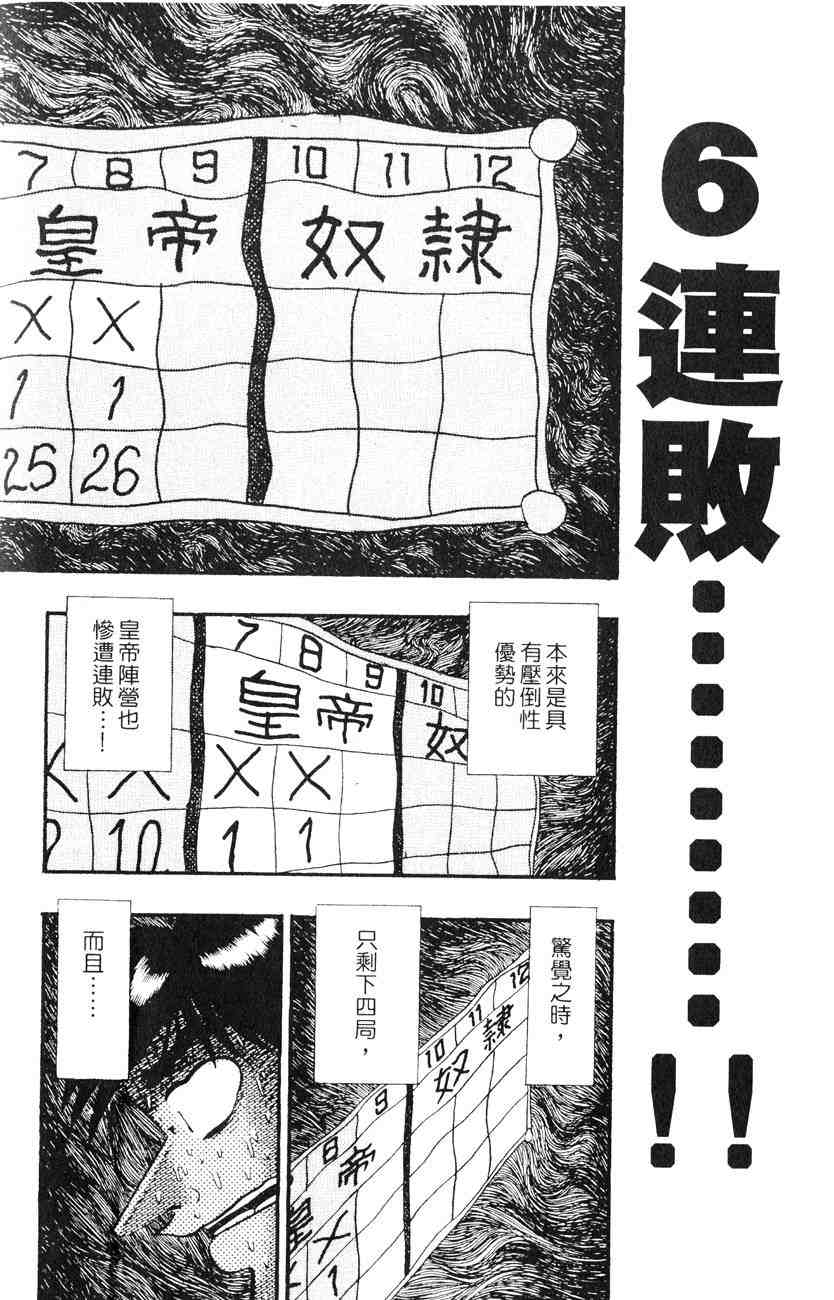 6連敗………！！
7 8 9 10 11 12
皇帝 奴隸
X X
1 1
25 26
本來是具
有壓倒性
優勢的
皇帝陣營也
慘遭連敗…！
7 8 9 10
皇帝 奴
X X X
10 1 1
驚覺之時，
只剩下四局，
8 9 10 11 12
皇帝 奴隸
X
1
而且……